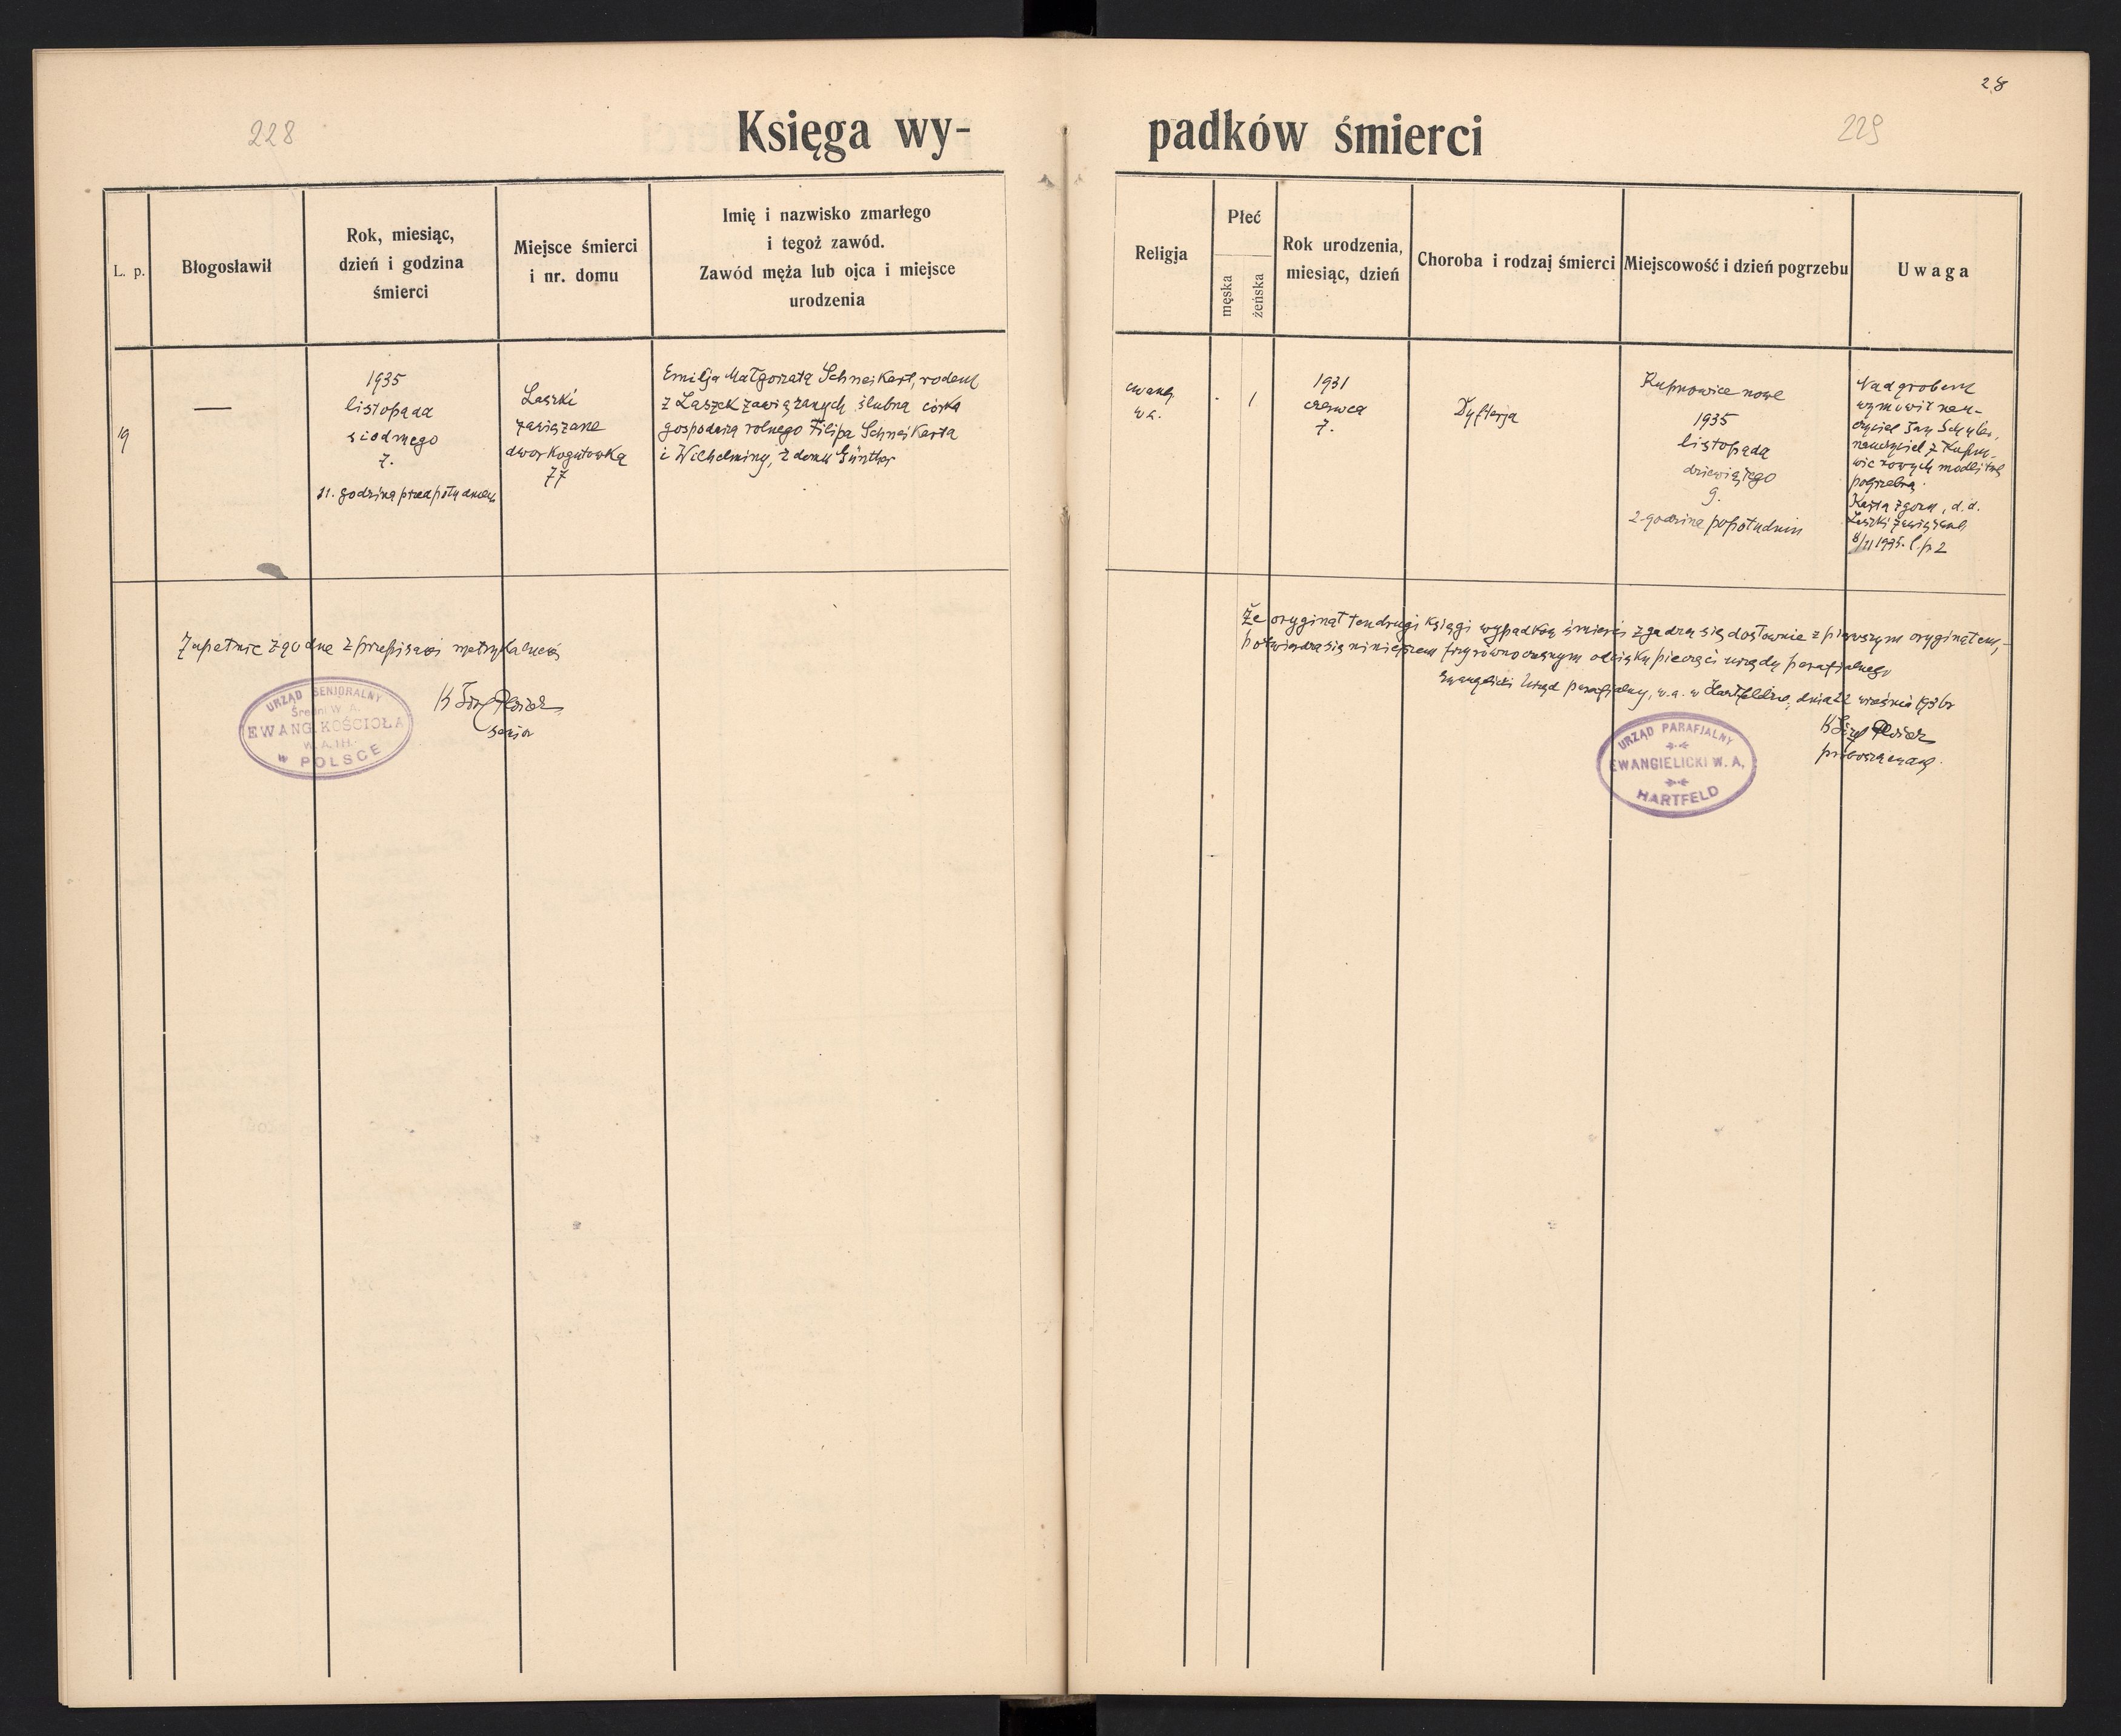 28
228
229
Księga wy-
padków śmierci
L. p.
Błogosławił
Rok, miesiąc,
dzień i godzina
śmierci
Miejsce śmierci
i nr. domu
Imię i nazwisko zmarłego
i tegoż zawód.
Zawód męża lub ojca i miejsce
urodzenia
Religja
Płeć
męska
żeńska
Rok urodzenia,
miesiąc, dzień
Choroba i rodzaj śmierci
Miejscowość i dzień pogrzebu
Uwaga
19
—
1935
listopada
siódmego
7.
11. godzina przedpołudniem
Laszki
zawiązane
dwór Kogutówka
77
Emilja Małgorzata Schneikert, rodem
z Laszek zawiązanych ślubna córka
gospodarza rolnego Filipa Schneikerta
i Wilhelminy, z domu Günther
ewang.
w.a.
1
1931
czerwca
7.
Dyfterja
Rupnowice nowe
1935
listopada
dziewiątego
9.
2 godzina popołudniu
Nad grobem
wymówił nau-
czyciel Jan
nauczyciel z
nowych modlitwę
pogrzebną.
d.d.
Laszki zawiązane
8/11 1935. l.p. 2
Zupełnie zgodne z przepisami metrykalnemi
URZĄD SENIORALNY
Średni W. A.
EWANG. KOŚCIOŁA
W. A. i H.
w POLSCE
senior
Że oryginał ten drugi księgi wypadków śmierci zgadza się dosłownie z pierwszym oryginałem,
potwierdza się niniejszem przy równoczesnym odcisku pieczęci urzędu parafjalnego
Ewangelicki Urząd parafjalny, w.a. w Hartfeldzie, dnia 22 września 1936 r
URZĄD PARAFJALNY
EWANGIELICKI W. A.
HARTFELD
proboszcz ewang.